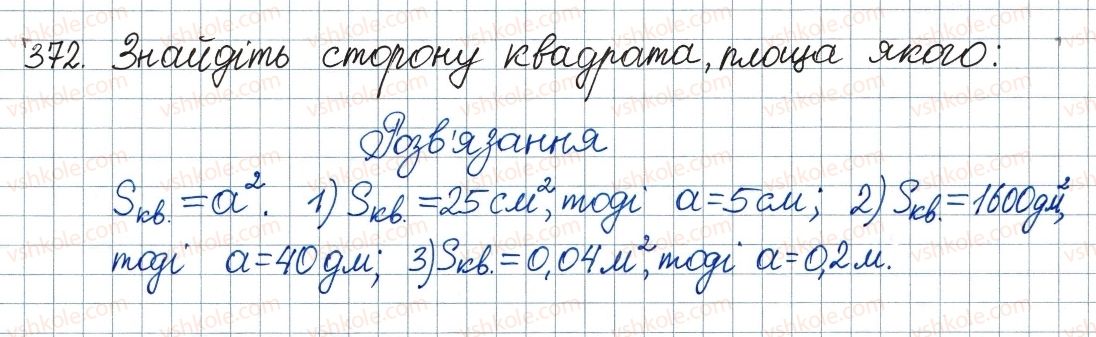 372. Знайдіть сторону квадрата, площа якого:
Розв'язання
Sкв. = a². 1) Sкв. = 25 см², тоді a = 5 см; 2) Sкв. = 1600 дм²,
тоді a = 40 дм; 3) Sкв. = 0,04 м², тоді a = 0,2 м.